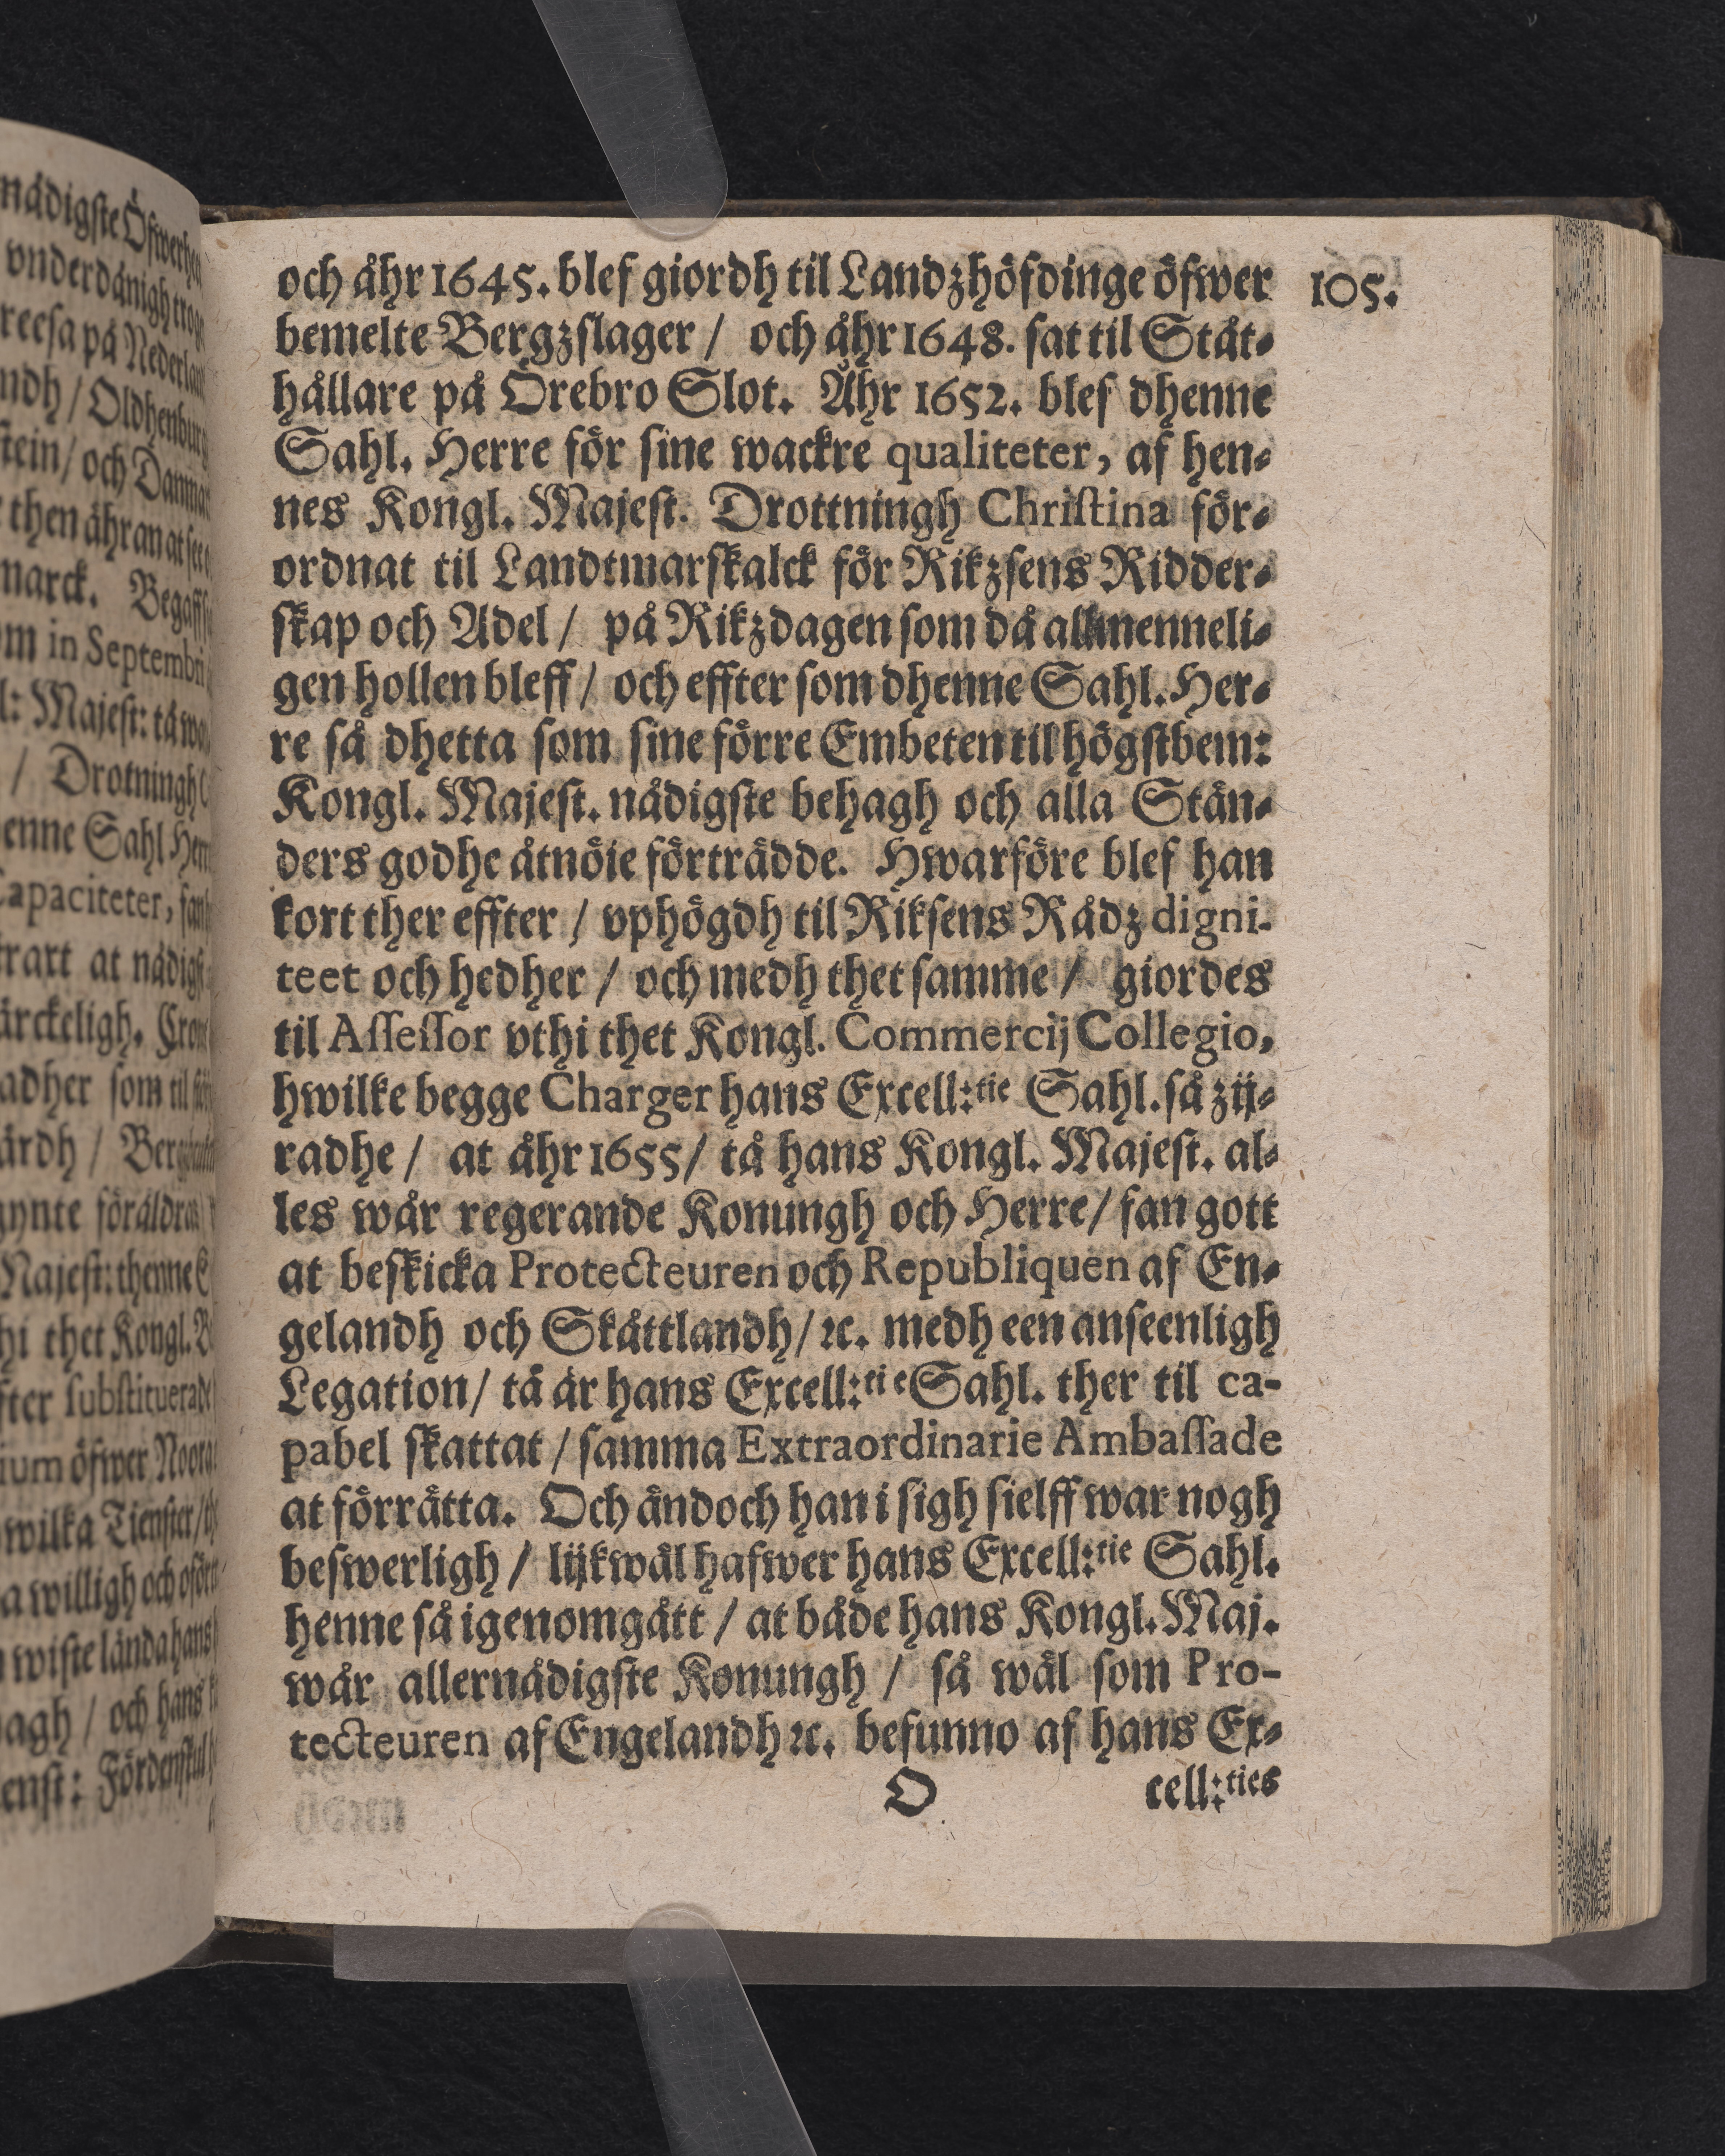 nådigste Öfwerhe
vnderdånigh trog
reesa på Nederlan
ndh / Oldhenburg
stein / och Danma
then åhr an at see
marck. Begaff
om in Septembri
l: Majest: tå wa
/ Drotningh
henne Sahl Her
Capaciteter, fan
rart at nådigst
ärckeligh. Cron
adher som til
ärdh / Ber
gynte föräldra
Majest: thenne
hi thet Kongl.
fter substituerade
ium öfwer Noora
wilka Tienster / th
a willigh och oför
wiste lända hans
hagh / och hans
enst: Fördenskul
och åhr 1645. blef giordh til Landzhöfdinge öfwer 105.
bemelte Bergzslager / och åhr 1648. sat til Ståt-
hållare på Örebro Slot. Åhr 1652. blef dhenne
Sahl. Herre för sine wackre qualiteter, af hen-
nes Kongl. Majest. Drottningh Christina för-
ordnat til Landtmarskalck för Rikzsens Ridder-
skap och Adel / på Rikzdagen som då allmenneli-
gen hollen bleff / och effter som dhenne Sahl. Her-
re så dhetta som sine förre Embeten til högstbem:
Kongl. Majest. nådigste behagh och alla Stän-
ders godhe åtnöie förträdde. Hwarföre blef han
kort ther effter / vphögdh til Riksens Rådz digni-
teet och hedher / och medh thet samme / giordes
til Assessor vthi thet Kongl. Commercij Collegio,
hwilke begge Charger hans Excell:tie Sahl. så zij-
radhe / at åhr 1655 / tå hans Kongl. Majest. al-
les wår regerande Konungh och Herre / fan gott
at beskicka Protecteuren och Republiquen af En-
gelandh och Skåttlandh / ꝛc. medh een anseenligh
Legation / tå är hans Excell:tie Sahl. ther til ca-
pabel skattat / samma Extraordinarie Ambassade
at förrätta. Och ändoch han i sigh sielff war nogh
beswerligh / lijkwäl hafwer hans Excell:tie Sahl.
henne så igenomgått / at både hans Kongl. Maj.
wår allernådigste Konungh / så wäl som Pro-
tecteuren af Engelandh ꝛc. befunno af hans Ex-
O cell:ties